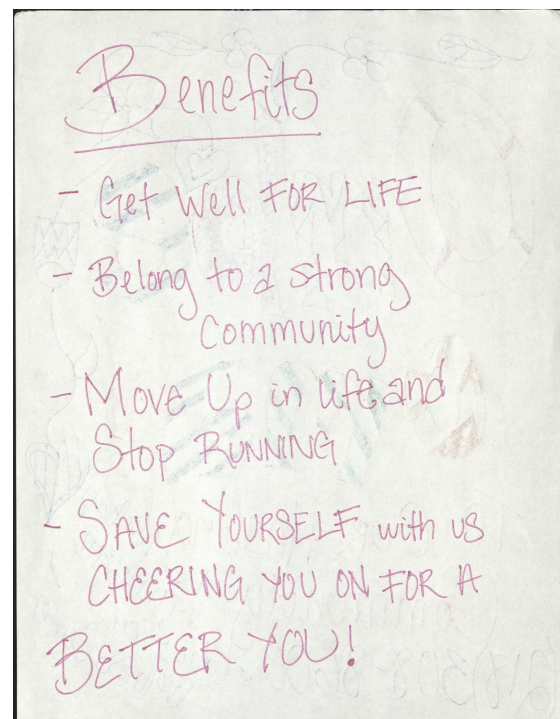 Benefits
- Get Well FOR LIFE
- Belong to a strong
Community
- Move Up in life and
Stop RUNNING
- SAVE YOURSELF with us
CHEERING YOU ON FOR A
BETTER YOU!